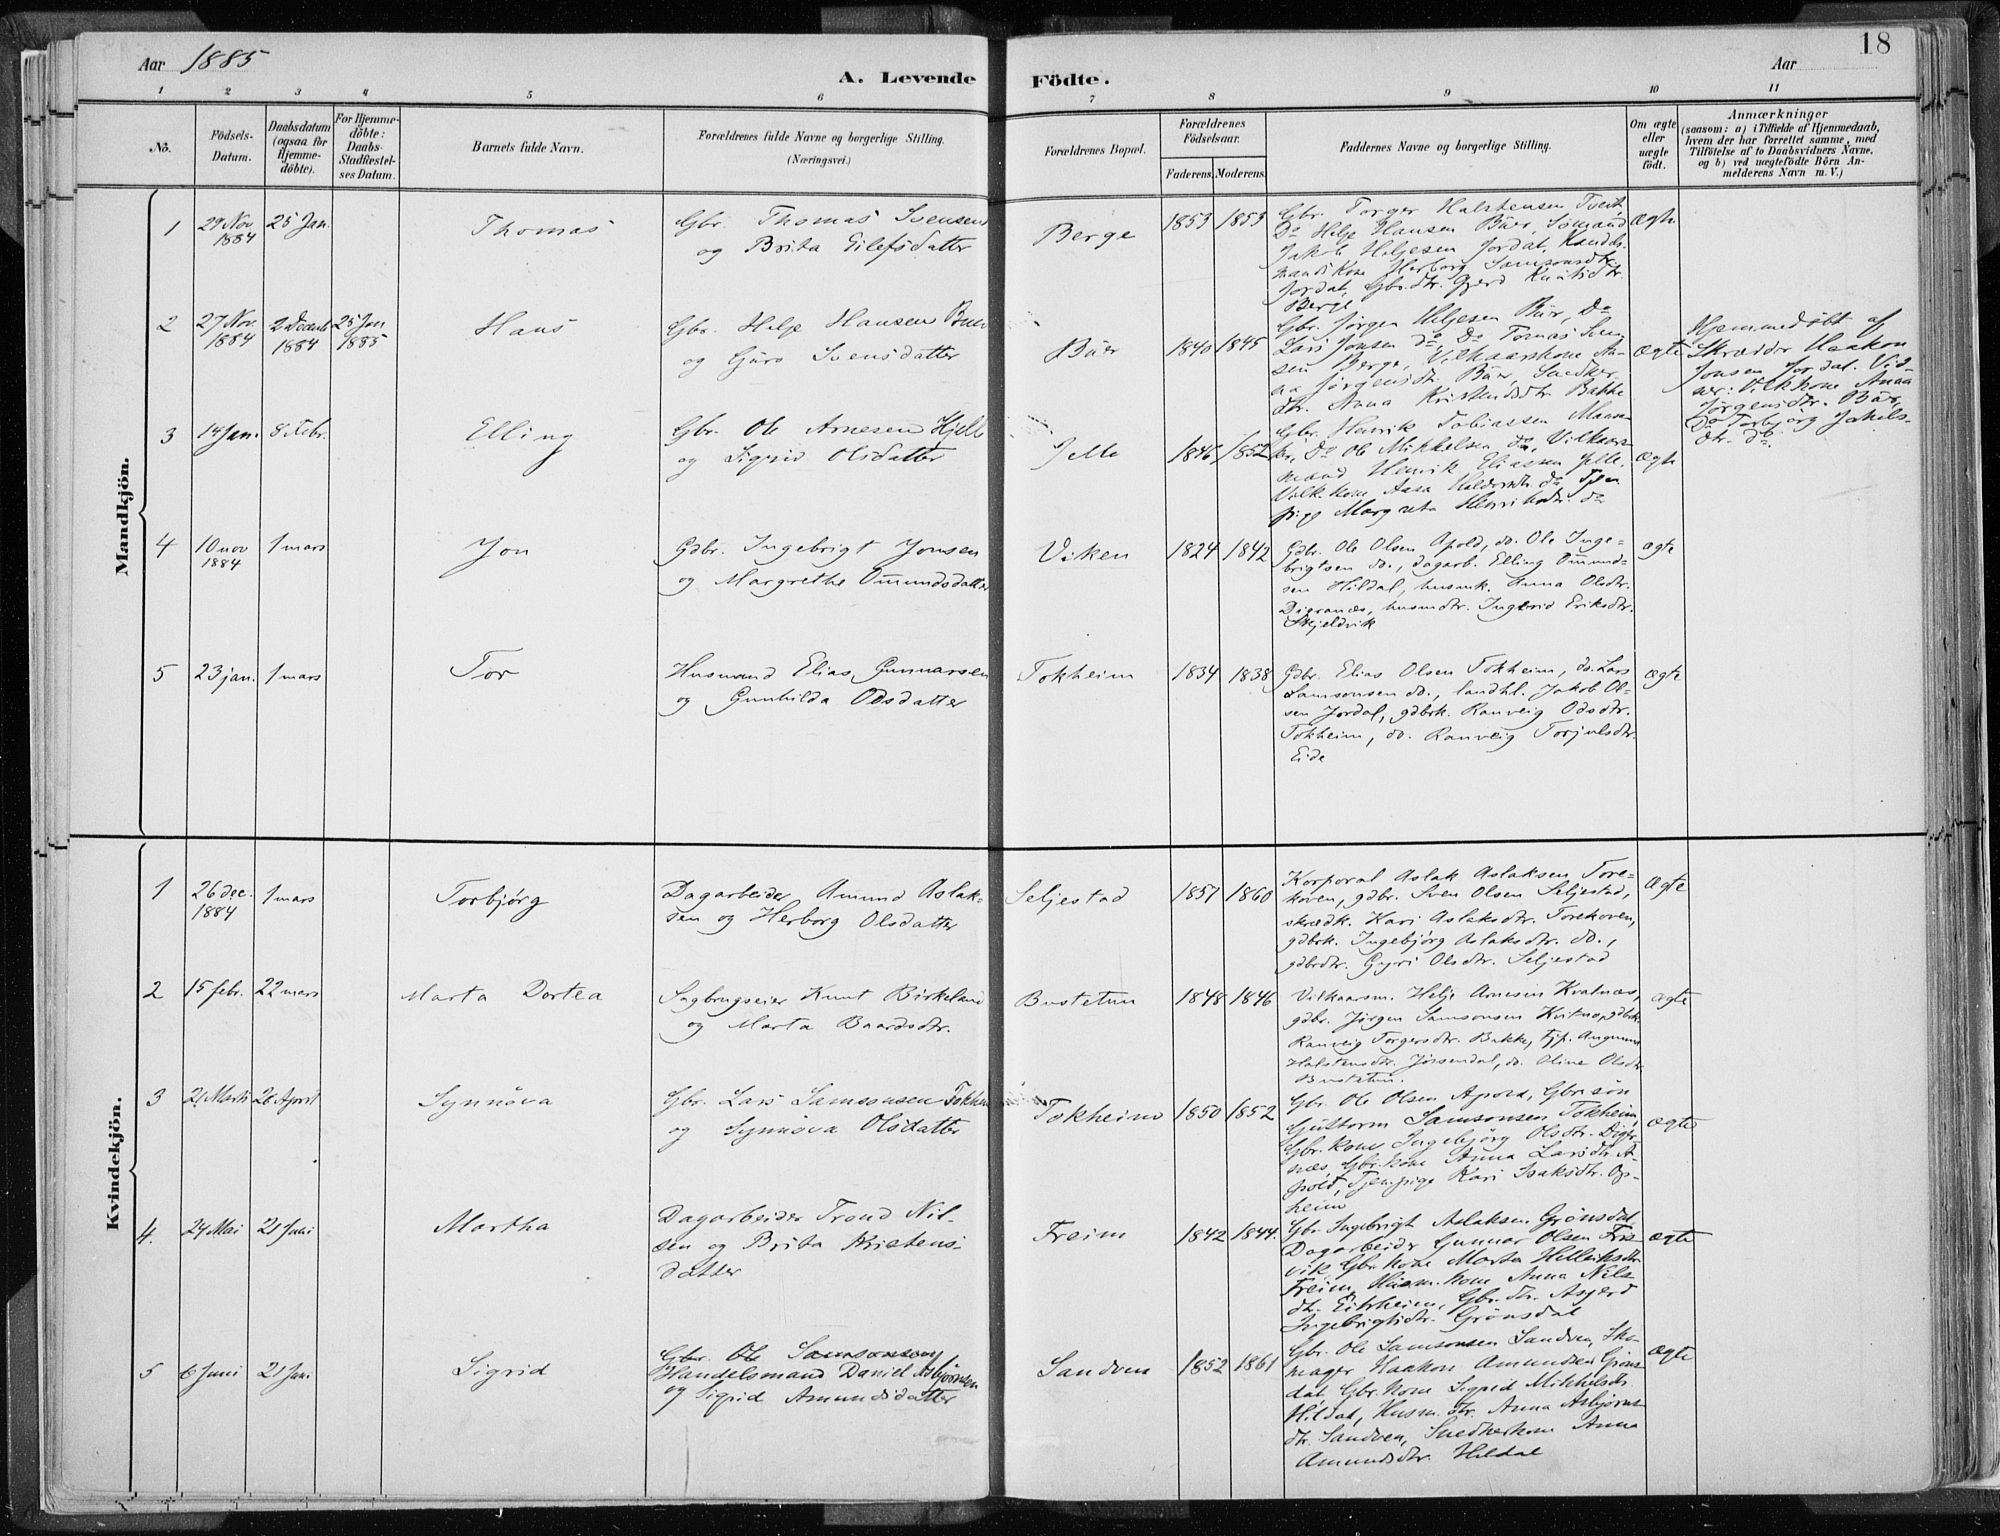 18
Aar 1885
A. Levende Födte.
Aar
1 2 3 4 5 6 7 8 9 10 11
No.
Födsels-Datum.
Daabsdatum (ogsaa for Hjemmedöbte).
For Hjemmedöbte: Daabs-Stadfæstelses Datum.
Barnets fulde Navn.
Forældrenes fulde Navne og borgerlige Stilling.
(Næringsvei.)
Forældrenes Bopæl.
Forældrenes Födselsaar.
Faderens. Moderens.
Faddernes Navne og borgerlige Stilling.
Om ægte eller uægte födt.
Anmærkninger
(saasom: a) i Tilfælde af Hjemmedaab,
hvem der har forrettet samme, med
Tilföielse af to Daabsvidners Navne.
og b) ved uægtefödte Börn An-
melderens Navn m. V.)
Mandkjön.
1 29 Nov 1884 25 Jan. Thomas
Gbr. Thomas Svensen
og Brita Eilefsdatter
Berge 1853 1853
Gbr. Torger Halstensen Tveit
Do Helje Hansen Büer, Sömand
Jakob Heljesen Jordal, Handels-
mandskone Herborg Samsonsdtr.
Jordal, Gbr.dtr. Gjerd Knutsdtr.
Berge
ægte
2 27 Nov. 1884 2 Decemb 1884 25 Jan 1885 Hans
Gbr. Helje Hansen Buer
og Güro Svensdatter
Büer 1840 1845
Gbr. Jörgen Heljesen Büer, Do
Lars Jonsen do, Do Tomas Sven-
sen Berge, Vilkaarskone An-
na Jörgensdtr. Büer, Snedker
dtr. Anna Kristensdtr Bakke
ægte
Hjemmedöbt af
Skrædder Haakon
Jonsen Jordal. Vid-
ner: Vilkkone Anna
Jörgensdtr. Büer,
Do Torbjörg Jakobs-
dtr. do.
3 14 Jan. 8 Febr. Elling
Gbr. Ole Arnesen Hjelle
og Sigrid Olsdatter
Jelle 1846 1852
Gbr. Henrik Tobiassen
Do Ole Mikkelsen do, Vilkaars-
mand Henrik Eliassen Jelle,
Vilk.kone Aasa do Tjen.
pige Margreta Henriksdtr. do
ægte
4 10 nov 1884 1 mars Jon
Gdbr. Ingebrigt Jonsen
og Margrethe Omundsdatter
Viken 1824 1842
Gdbr. Ole Olsen Apold, do. Ole Inge-
brigtsen do., dagarb. Elling Omund-
sen Hildal, husmk. Anna Olsdtr.
Digranæs, husmdtr. Ingerid Eriksdtr.
Skjeldvik
ægte
5 23 jan. 1 mars Tor
Husmand Elias Gunnarsen
og Gunhilda Odsdatter
Tokheim 1834 1838
Gdbr. Elias Olsen Tokheim, do. Lars
Samsonsen do., landhl. Jakob Ol-
sen Jordal, gdbrk. Ranveig Odsdtr.
Tokheim, do. Ranveig Torjulsdtr.
Eide
ægte
Kvindekjön.
1 26 dec. 1884 1 mars Torbjørg
Dagarbeider Amund Aslak-
sen og Herborg Olsdatter
Seljestad 1857 1860
Korporal Aslak Aslaksen Tore-
koven, gdbr. Sven Olsen Seljestad,
skrædk. Kari Aslaksdtr. Torekoven,
gdbrk. Ingebjørg Aslaksdtr. do.,
gdbrdtr. Gyri Olsdtr. Seljestad
ægte
2 15 febr. 22 mars Marta Dortea
Sagbrugseier Knut Birkeland
og Marta Baardsdtr.
Bustetun 1848 1846
Vilkaarsm. Helje Arnesen Kvalnæs,
gdbr. Jørgen Samsonsen Kvitno, gdbrk.
Ranveig Torgersdtr. Bakke, tjp.
Halstensdtr. Jøssendal, do. Oline Olsdtr
Bustetun.
ægte
3 21 Marts 26 April Synnöva
Gbr. Lars Samsonsen Tokheim
og Synnöva Olsdatter
Tokheim 1850 1852
Gbr. Ole Olsen Apold, Gbr. sön
Guttorm Samsonsen Tokheim,
Gbr.kone Ingebjörg Olsdtr. Digr-
næs, Gbr.kone Anna Larsdtr. A-
pold, Tjen.pige Kari Isaksdtr. Op-
heim
ægte
4. 24 Mai 21 Juni Martha
Dagarbeider Trond Nil-
sen og Brita Kristens-
datter
Freim 1842 1844.
Gbr. Ingebrigt Aslaksen Grönsdal,
Dagarbeider Gunnar Olsen
vik, Gbr.kone Marta
Freim, Husm.kone Anna Nils-
dtr. Eitrheim, Gbr.dtr. Asgerd
Ingebrigtsdtr. Grönsdal
ægte
5 6 Juni 21 Juni Sigrid
Gbr. Ole Samsonsen
Handelsmand Daniel Asbjörnsen
og Sigrid Amundsdatter
Sandven 1852 1861
Gbr. Ole Samsonsen Sandven, Sko-
mager Haakon Amundsen Gröns-
dal, Gbr.kone Sigrid Mikkelsdtr
Hildal, Husm.dtr. Anna Asbjörns-
dtr. Sandven, Snedkerkone Anna
Amundsdtr. Hildal
ægte